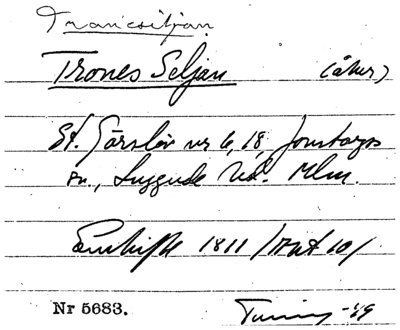 Trancsiljan
Trones Seljan (åker)
St. Görslöv nr 6, 18, Jonstorps
sn., Luggude hd. Mlm.
Enskifte 1811 (Akt 10)
Nr 5683. Tuning -49